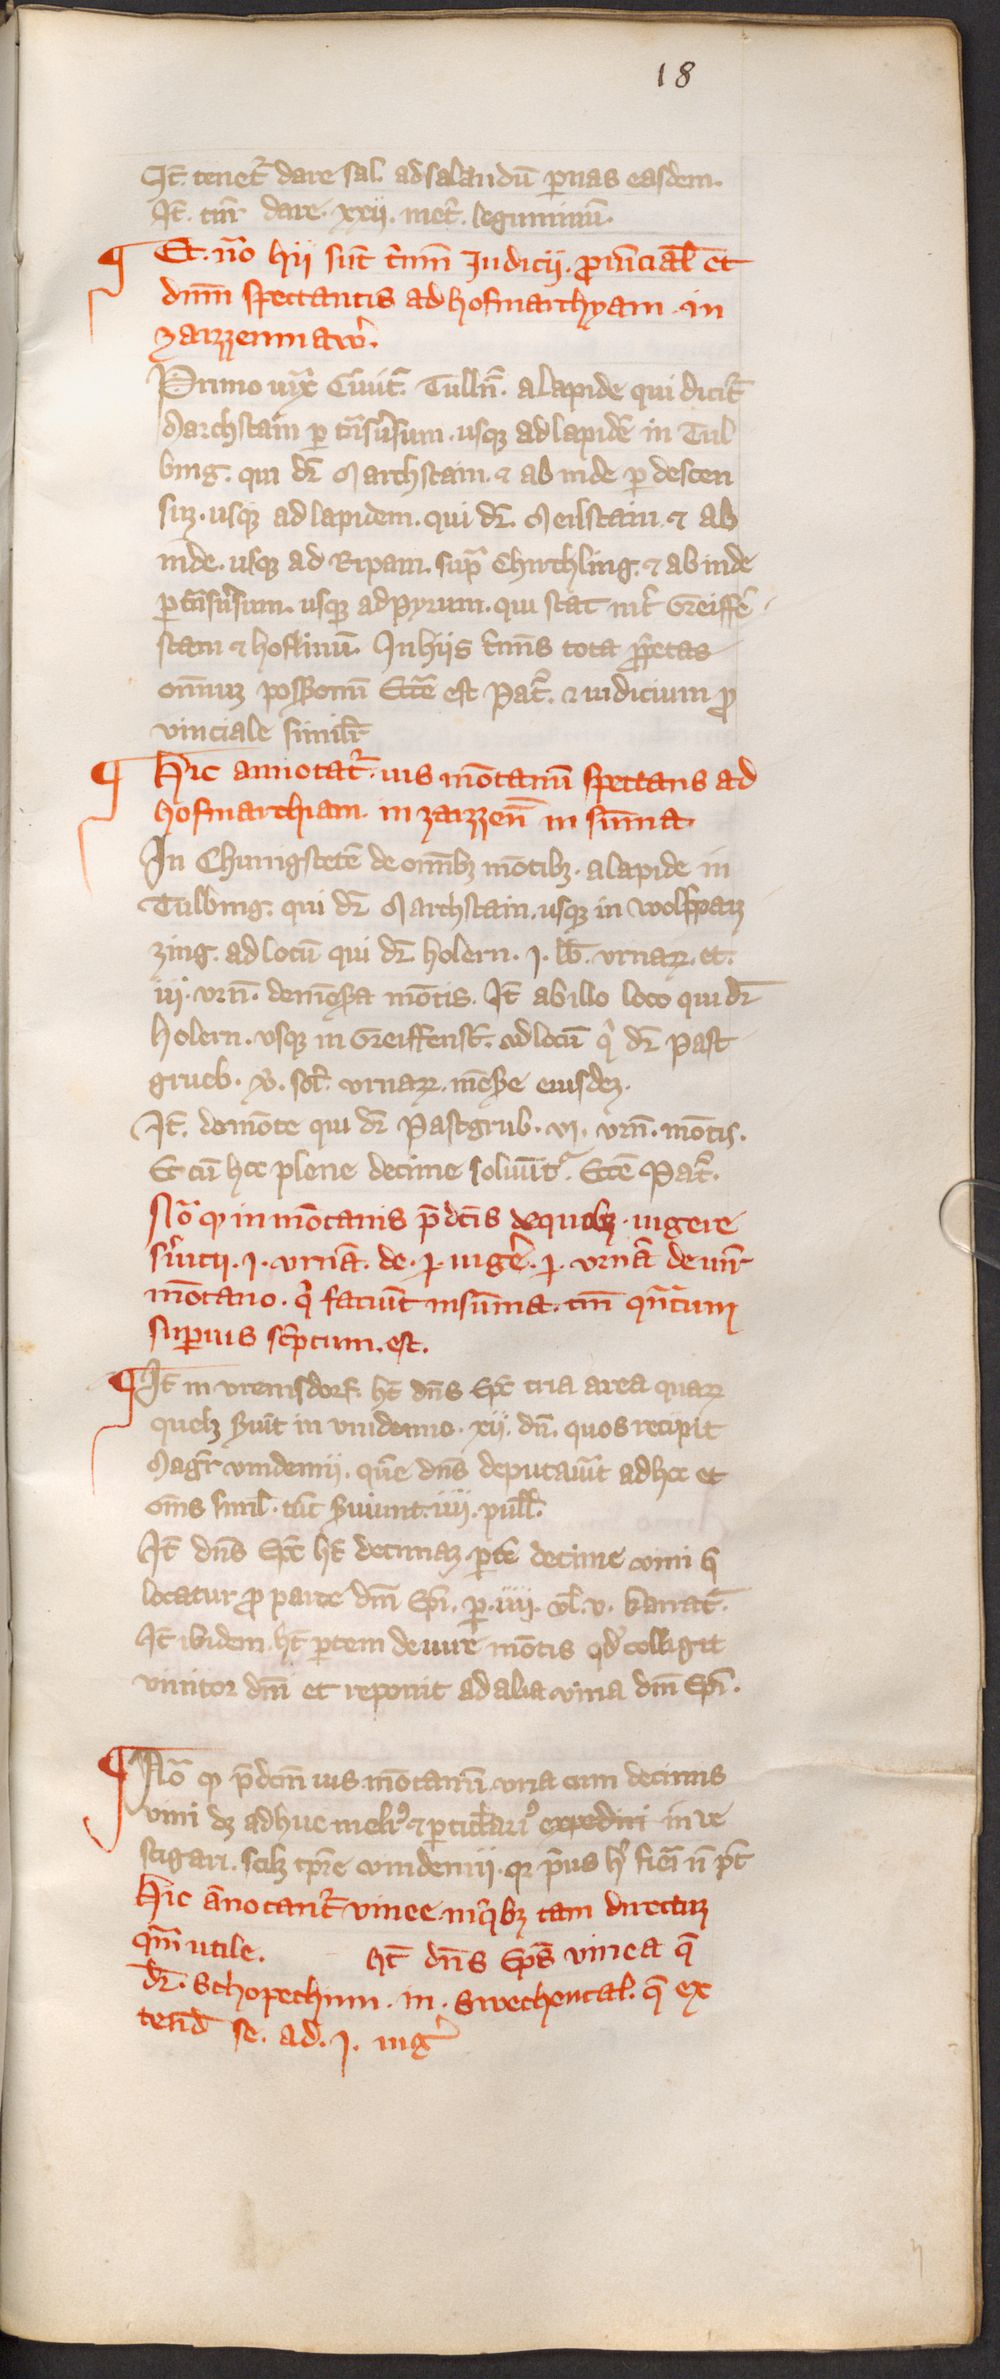 18
It̄. tenet᷑ dare sal. ad salandū ꝑnas easdem.
It̄. tn̄r dare. xxij. met᷑. leguminū.
Et. nō hij sūt t᷑mīni Judicij. ꝓuīcial̄ et
dnm̄ spectantis ad hofmarchyam. in
zarzzenmaw᷑.
Primo iux̄ Ciuit̄. Tulln̄. a lapide qui dicit᷑
Marchstain ꝑ tn̄suersum. usqꝫ ad lapidē in Tul
bing. qui dr̄ Marchstain. ⁊ ab inde ꝑ descen
suꝫ. usqꝫ ad lapidem. qui dr̄. Meilstain. ⁊ ab
inde. usqꝫ ad Ripam. sup̄ Chirchling. ⁊ ab inde
ꝑ tn̄suersum. usqꝫ ad pyrum. qui stat int᷑ Greiffē
stain ⁊ hoflinū. In hijs t᷑mīs tota ꝓp̄etas
omniuꝫ possessionū Ecc̄e est Pat̄. ⁊ iudicium ꝓ
vinciale simil᷑r
Hic annotat᷑. ius mōtanū spectans ad
hofmarchiam. in zarzzen̄ in sūma.
In Chunigstetē de om̄ibꝫ mōtibꝫ. a lapide in
Tulbing. qui dr̄ Marchstain. usqꝫ in wolfparz
zing. ad locū qui dr̄ holern. j. lb̄. vrnaꝝ. et.
iij. vrn̄. de mēsura mōtis. It̄ ab illo loco qui dr̄
holern. vsqꝫ in Greiffenst̄. ad locū q̇ dr̄ Past
grueb. v. sol̄. vrnaꝝ. mēsure eiusdeꝫ.
It̄. de mōte qui dr̄ Pastgrub. vj. vrn̄. mōtis.
Et cū hoc plene decime soluūt᷑. Ecc̄e Pat̄.
Nō ꝙ in mōtanis p̄dc̄is de quolꝫ. iugere
s᷑uitij. j. vrnā. de. j. iug᷑e. j. vrnā de iur̄
mōtano. q̇ faciūt in sūma. tm̄ qn̄tum
superius sc̄ptum. est.
It̄ in vremsdorf. ht̄ dn̄s Ep̄c tria area quaꝝ
quelꝫ suit in vindemio. xij. dn̄. quos recipit
Magr̄ vindemij. quē dn̄s deputauit ad hoc et
om̄s simil̄. tūc s᷑uiunt. iiij. pull̄.
It̄ dn̄s Ep̄c ht̄ decimaꝫ ptē decime vini q̄
locatur ꝓ parte dn̄i Ep̄i. ꝑ. iiij. vl̄. v. karrat̄.
It̄ ibidem. ht̄ ptem de iure mōtis qd̄ colligit
vinitor dn̄i et reponit ad alia vina dn̄i Ep̄i.
Nō ꝙ p̄dcm̄ ius mōtanū vna cum decimis
vini dꝫ adhuc meliꝰ ⁊ ꝑticulariꝰ expediri in ve
stigari. scilꝫ tp̄re vindemij. qꝛ pͥus h᷑ fieri n̄ pt̄
Hic ānotant᷑ vinee in q̇bꝫ tam directuꝫ
qm̄ utile. ht̄ dn̄s Ep̄s vinea q̄
dr̄. Schopechinn. in. Swechental. q̄ ex
tend̄ se. ad. j. iug᷑